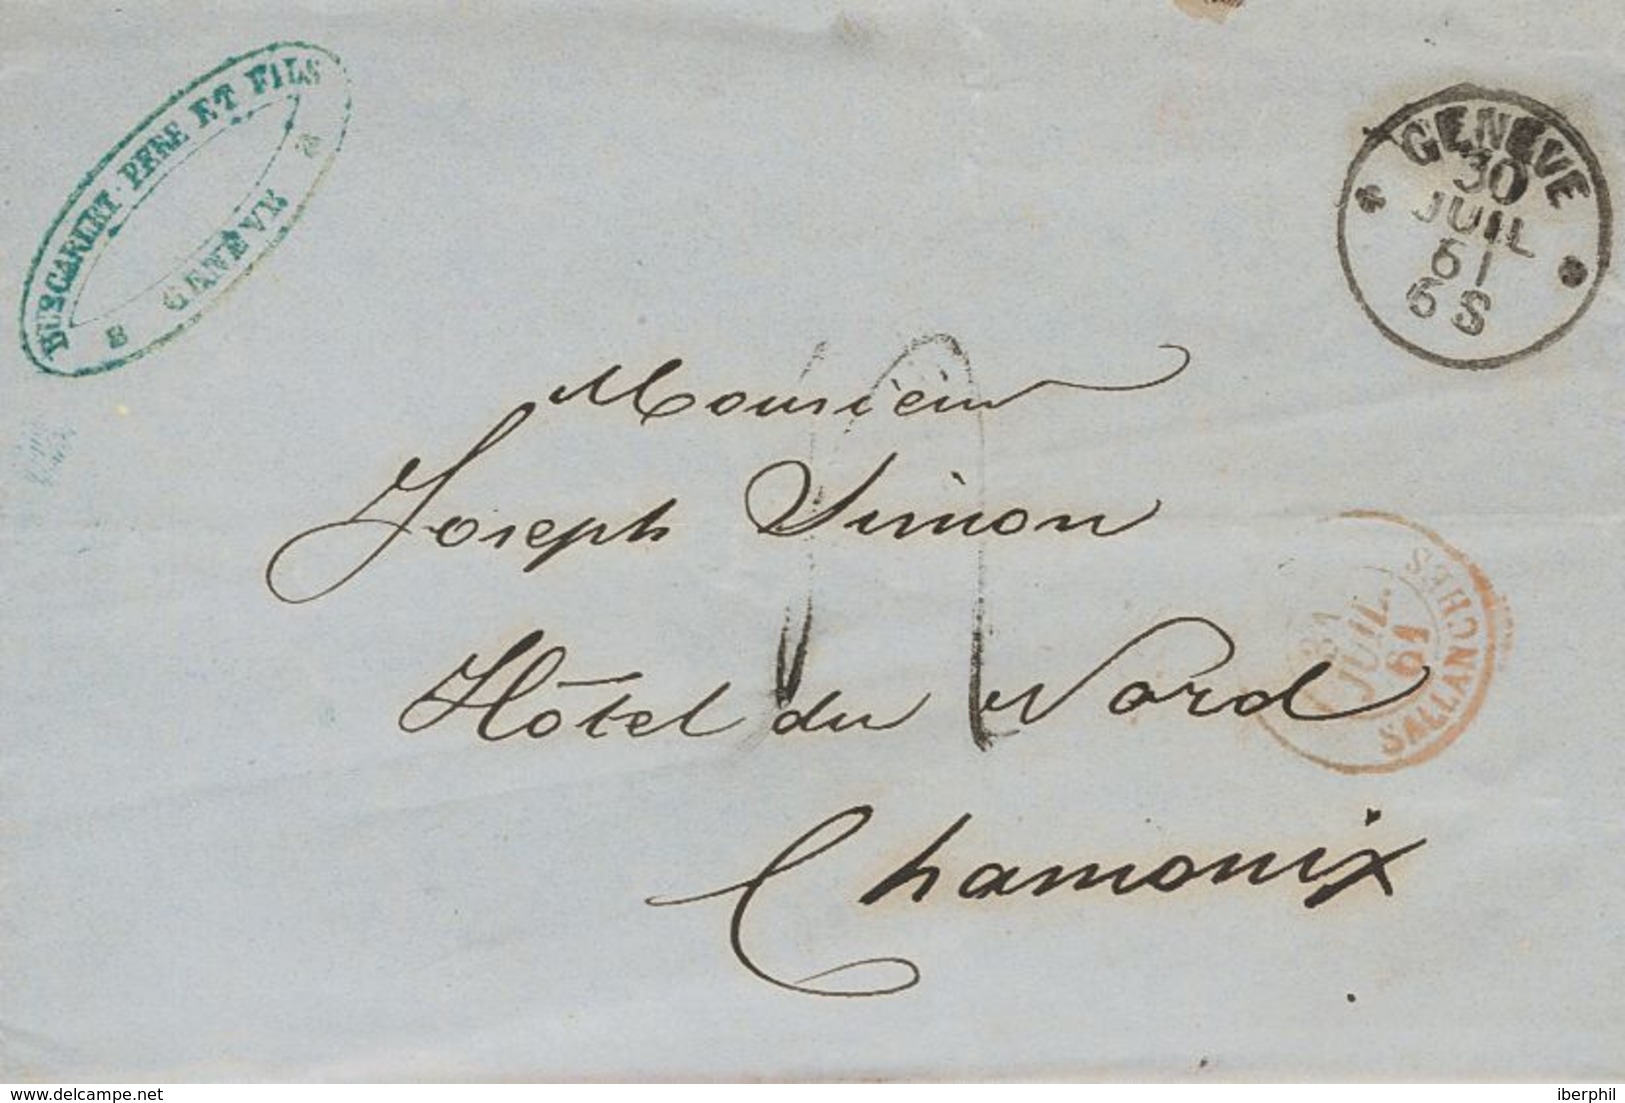 DUSCARLET PERE ET FILS
GENÈVE
GENÈVE
30
JUIL
61
6 S
Monsieur
Joseph Simon
Hôtel du Nord
Chamonix
SALLANCHES
31
JUIL.
61
delcampe.net
iberphil